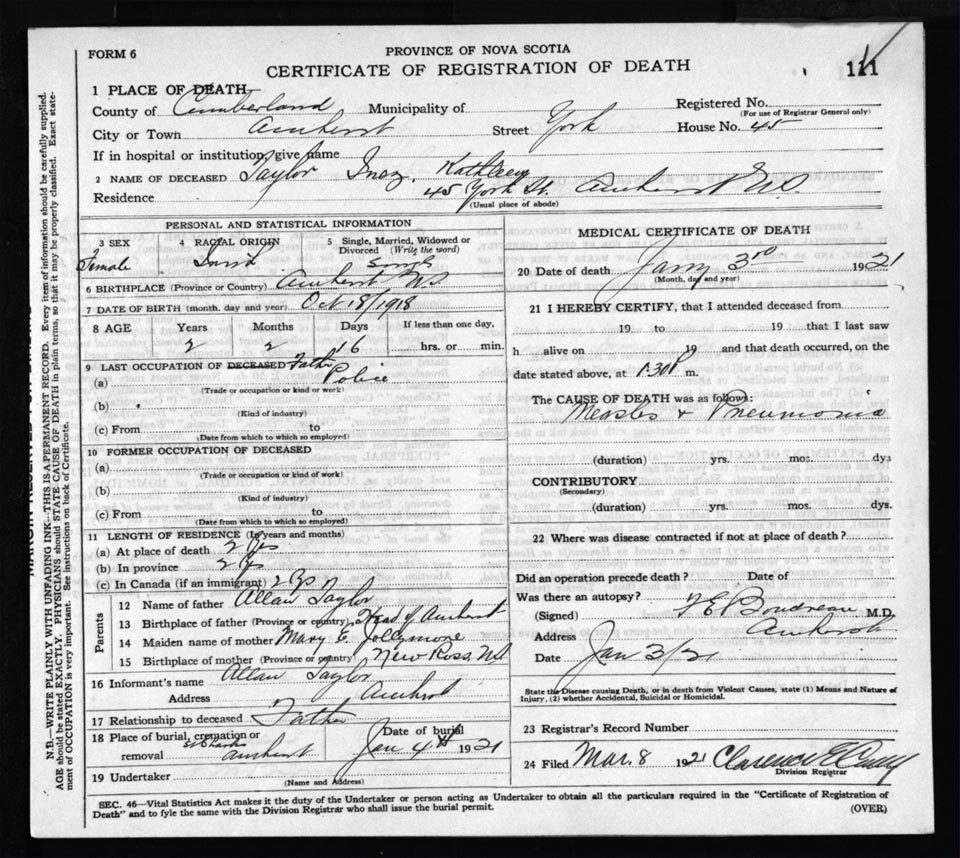 FORM 6
PROVINCE OF NOVA SCOTIA
CERTIFICATE OF REGISTRATION OF DEATH
111
1 PLACE OF DEATH
County of Cumberland Municipality of
Registered No.
(For use of Registrar General only)
City or Town Amherst Street York House No. 45
If in hospital or institution, give name
2 NAME OF DECEASED Taylor Inez Kathleen
Residence 45 York St. Amherst N.S.
(Usual place of abode)
PERSONAL AND STATISTICAL INFORMATION
3 SEX 4 RACIAL ORIGIN 5 Single, Married, Widowed or Divorced (Write the word)
Female Single
6 BIRTHPLACE (Province or Country) Amherst N.S.
7 DATE OF BIRTH (month, day and year) Oct 18/1918
8 AGE Years Months Days If less than one day,
2 2 16 hrs. or min.
9 LAST OCCUPATION OF DECEASED Father
(a) Police
(Trade or occupation or kind of work)
(b)
(Kind of industry)
(c) From to
(Date from which to which so employed)
10 FORMER OCCUPATION OF DECEASED
(a)
(Trade or occupation or kind of work)
(b)
(Kind of industry)
(c) From to
(Date from which to which so employed)
11 LENGTH OF RESIDENCE (In years and months)
(a) At place of death 2 Yrs
(b) In province 2 Yrs
(c) In Canada (if an immigrant) 2 Yrs
Parents
12 Name of father Allan Taylor
13 Birthplace of father (Province or country) Head of Amherst
14 Maiden name of mother Mary E. Jollymore
15 Birthplace of mother (Province or country) New Ross, N.S.
16 Informant's name Allan Taylor
Address Amherst
17 Relationship to deceased Father
18 Place of burial, cremation or removal Amherst
Date of burial
Jan 4th 1921
19 Undertaker
(Name and Address)
MEDICAL CERTIFICATE OF DEATH
20 Date of death Janry 3rd 1921
(Month, day and year)
21 I HEREBY CERTIFY, that I attended deceased from
19 to 19 that I last saw
h alive on 19 and that death occurred, on the
date stated above, at 1.30 P m.
The CAUSE OF DEATH was as follows:
Measles & Pneumonia
(duration) yrs. mos. dys
CONTRIBUTORY
(Secondary)
(duration) yrs. mos. dys.
22 Where was disease contracted if not at place of death?
Did an operation precede death? Date of
Was there an autopsy?
(Signed) Boudreau M.D.
Address Amherst
Date Jan 3/21
State the Disease causing Death, or in death from Violent Causes, state (1) Means and Nature of
Injury, (2) whether Accidental, Suicidal or Homicidal.
23 Registrar's Record Number
24 Filed Mar. 8 1921 Clarence E.
Division Registrar
SEC. 46—Vital Statistics Act makes it the duty of the Undertaker or person acting as Undertaker to obtain all the particulars required in the "Certificate of Registration of
Death" and to fyle the same with the Division Registrar who shall issue the burial permit.
(OVER)
N.B.—WRITE PLAINLY WITH UNFADING INK—THIS IS A PERMANENT RECORD. Every item of information should be carefully supplied.
AGE should be stated EXACTLY. PHYSICIANS should STATE CAUSE OF DEATH in plain terms, so that it may be properly classified. Exact state-
ment of OCCUPATION is very important. See instructions on back of Certificate.